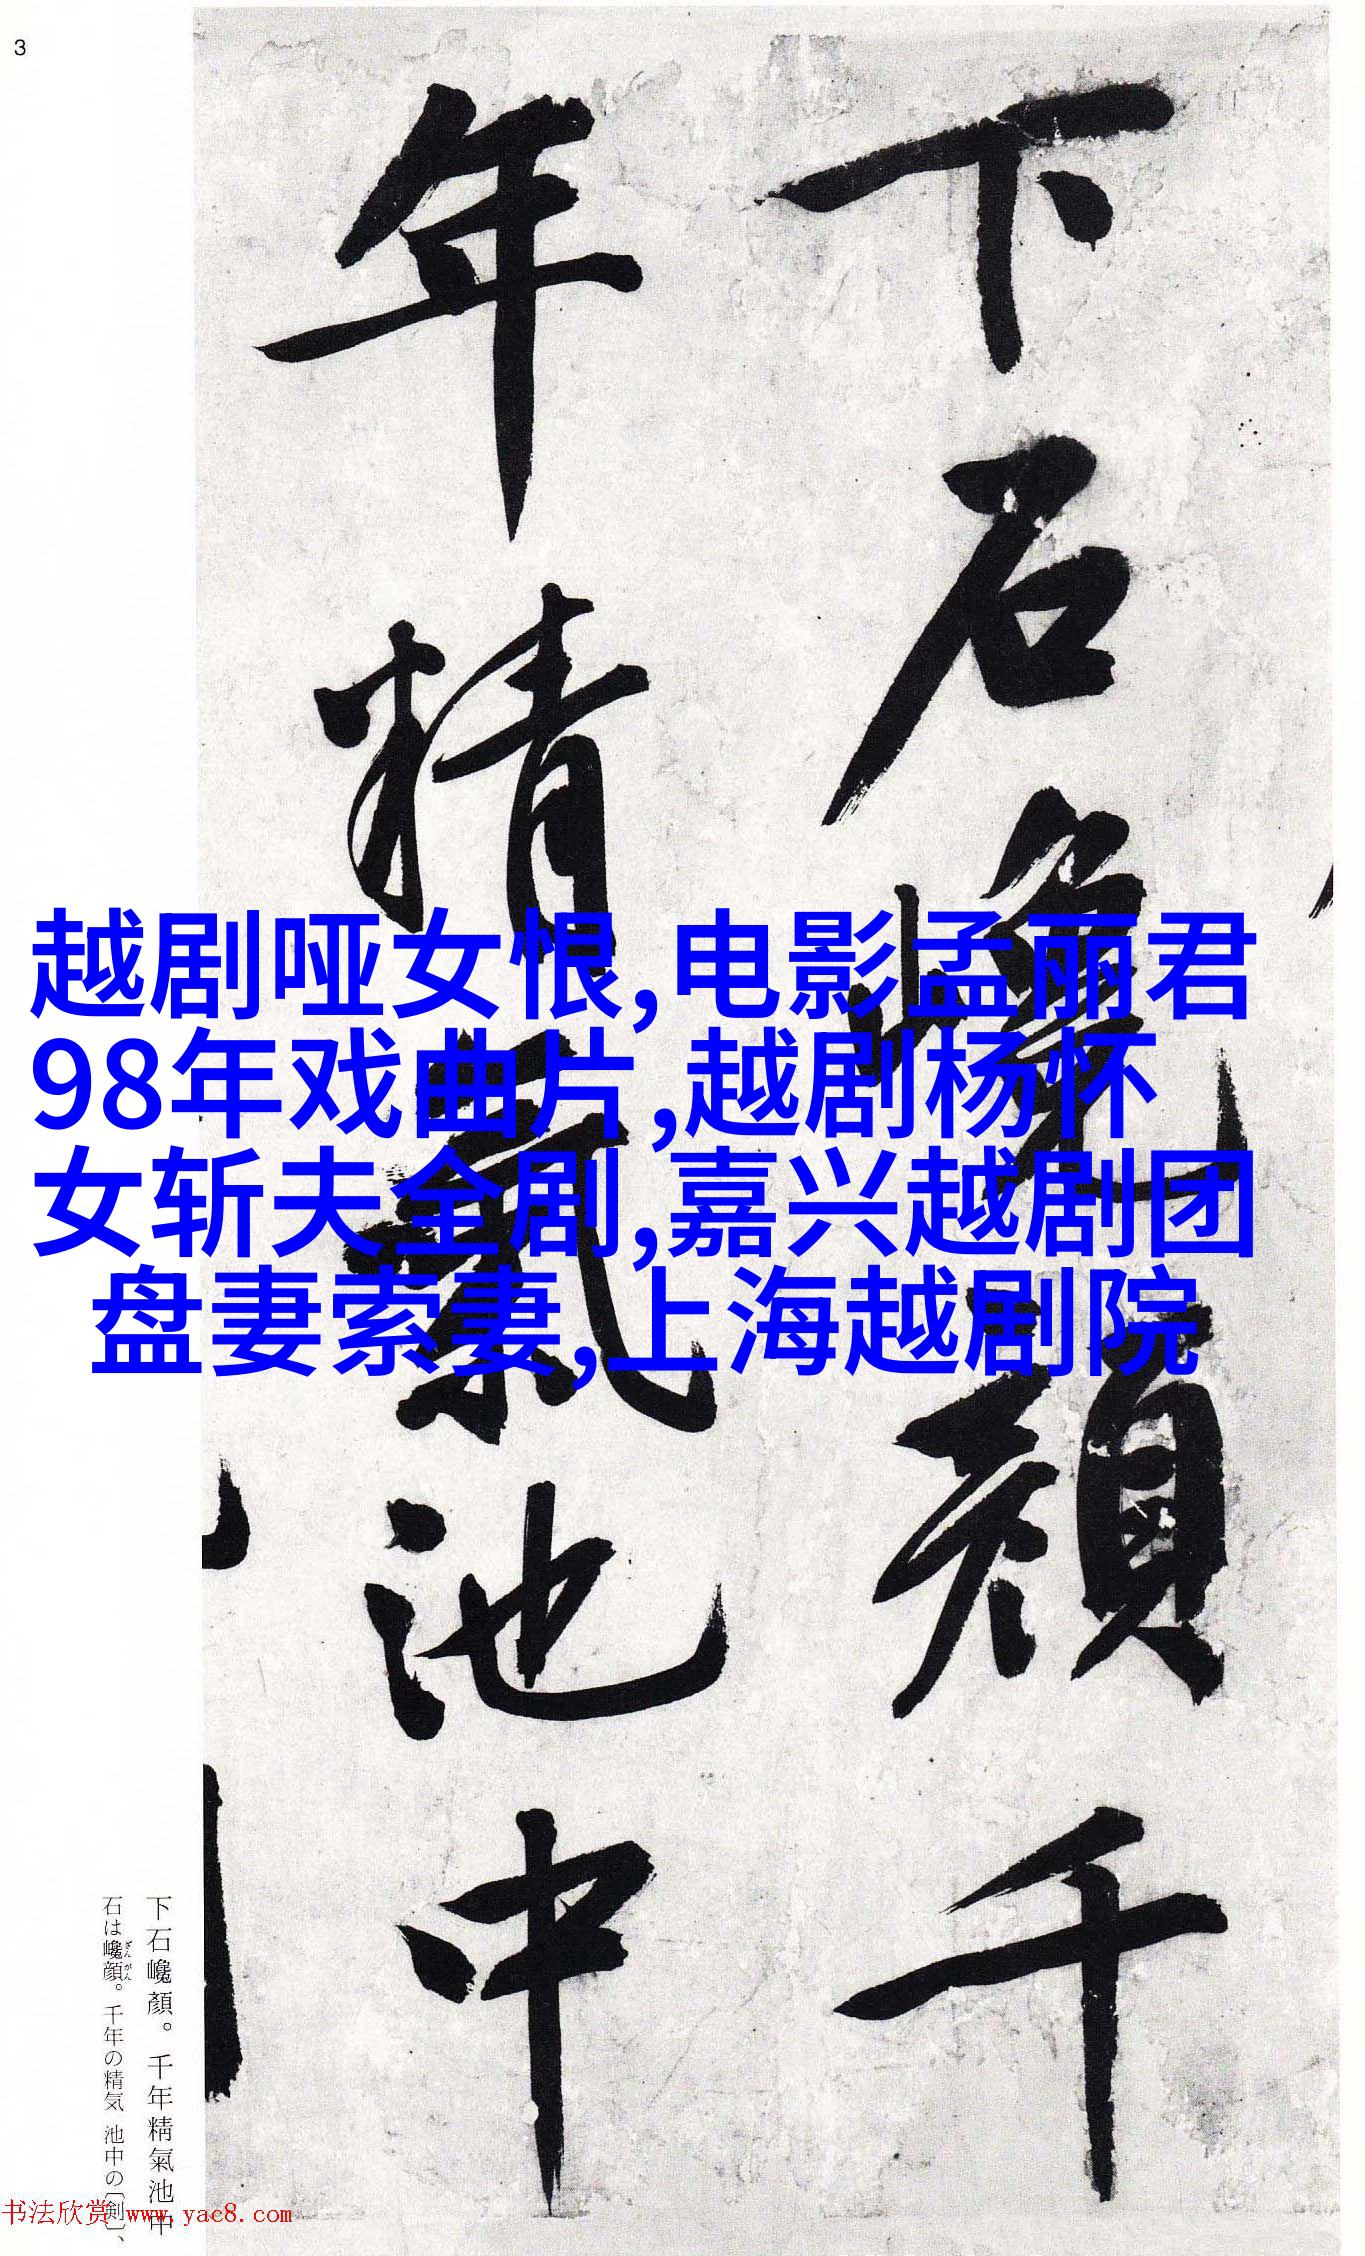 3
下石巉顏千
年精氣池中
越剧哑女恨,电影孟丽君
98年戏曲片,越剧杨怀
女斩夫全剧,嘉兴越剧团
盘妻索妻,上海越剧院
下石巉顏。千年精氣池中
石は巉顔。千年の精気 池中の〔剣〕、
ざん がん
书法欣赏 www.yac8.com